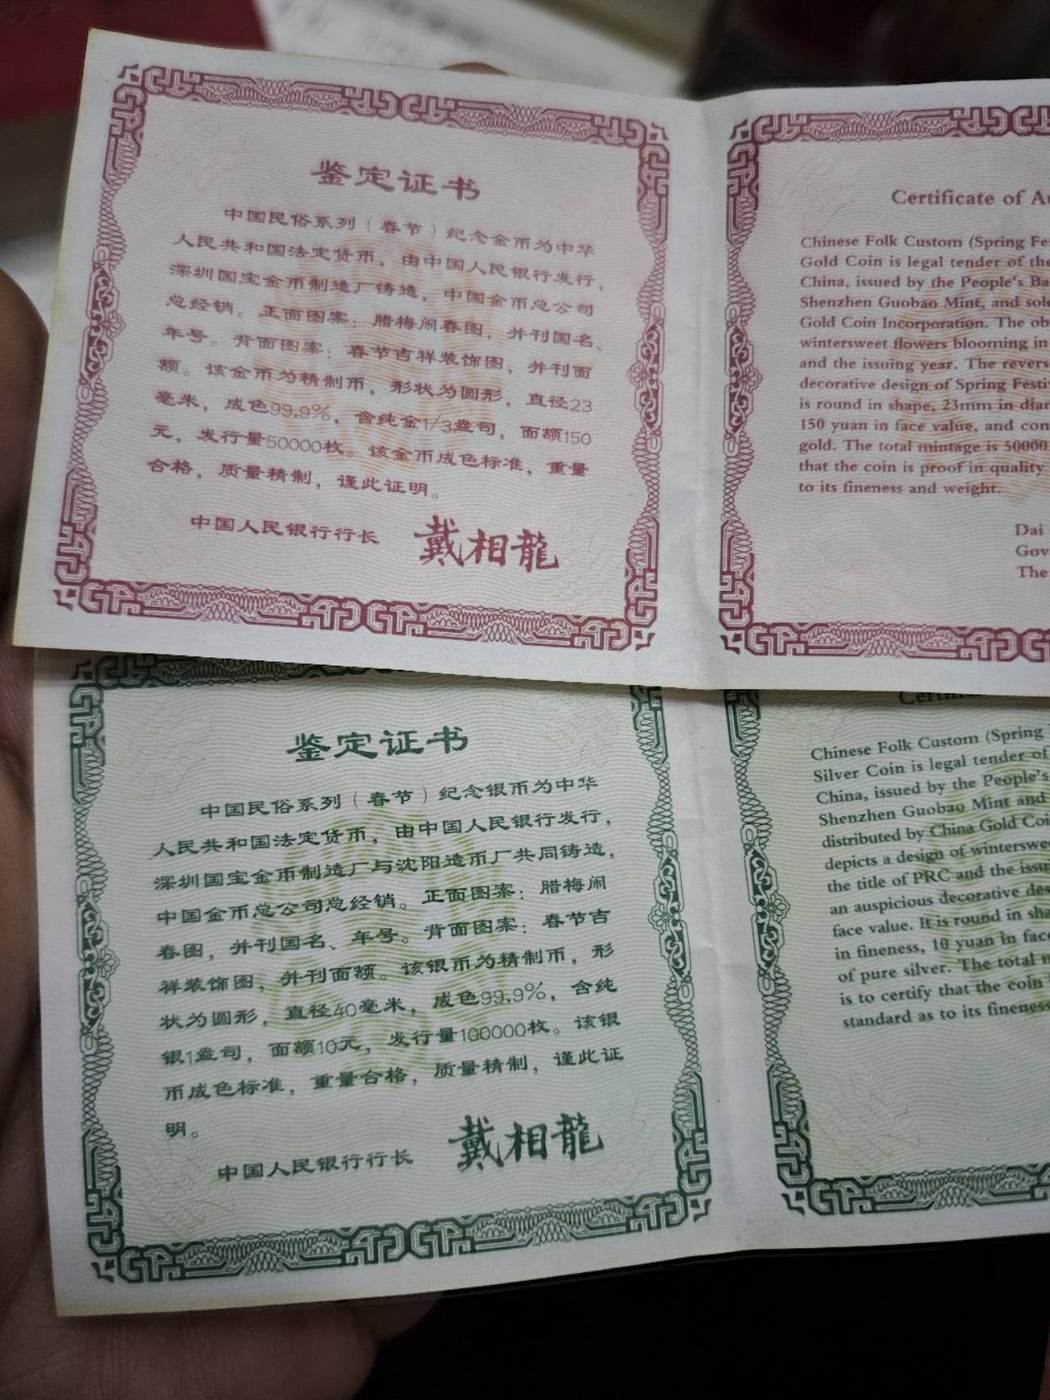 鉴定证书
中国民俗系列（春节）纪念金币为中华
人民共和国法定货币，由中国人民银行发行，
深圳国宝金币制造厂铸造，中国金币总公司
总经销。正面图案：腊梅闹春图，并刊国名、
年号。背面图案：春节吉祥装饰图，并刊面
额。该金币为精制币，形状为圆形，直径23
毫米，成色99.9%，含纯金1/3盎司，面额150
元，发行量50000枚。该金币成色标准，重量
合格，质量精制，谨此证明。
中国人民银行行长 戴相龍
Certificate of
Chinese Folk Custom (Spring
Gold Coin is legal tender of the
China, issued by the People's
Shenzhen Guobao Mint, and
Gold Coin Incorporation. The
wintersweet flowers blooming in
and the issuing year. The
decorative design of Spring
is round in shape, 23mm in
150 yuan in face value, and
gold. The total mintage is 50000
that the coin is proof in quality
to its fineness and weight.
Dai
The
鉴定证书
中国民俗系列（春节）纪念银币为中华
人民共和国法定货币，由中国人民银行发行，
深圳国宝金币制造厂与沈阳造币厂共同铸造，
中国金币总公司总经销。正面图案：腊梅闹
春图，并刊国名、年号。背面图案：春节吉
祥装饰图，并刊面额。该银币为精制币，形
状为圆形，直径40毫米，成色99.9%，含纯
银1盎司，面额10元，发行量100000枚。该银
币成色标准，重量合格，质量精制，谨此证
明。
中国人民银行行长 戴相龍
Chinese Folk Custom (Spring
Silver Coin is legal tender of
China, issued by the People's
Shenzhen Guobao Mint and
distributed by China Gold
depicts a design of
the title of PRC and the
an auspicious decorative
face value. It is round in
in fineness, 10 yuan in
of pure silver. The total
is to certify that the coin
standard as to its fineness